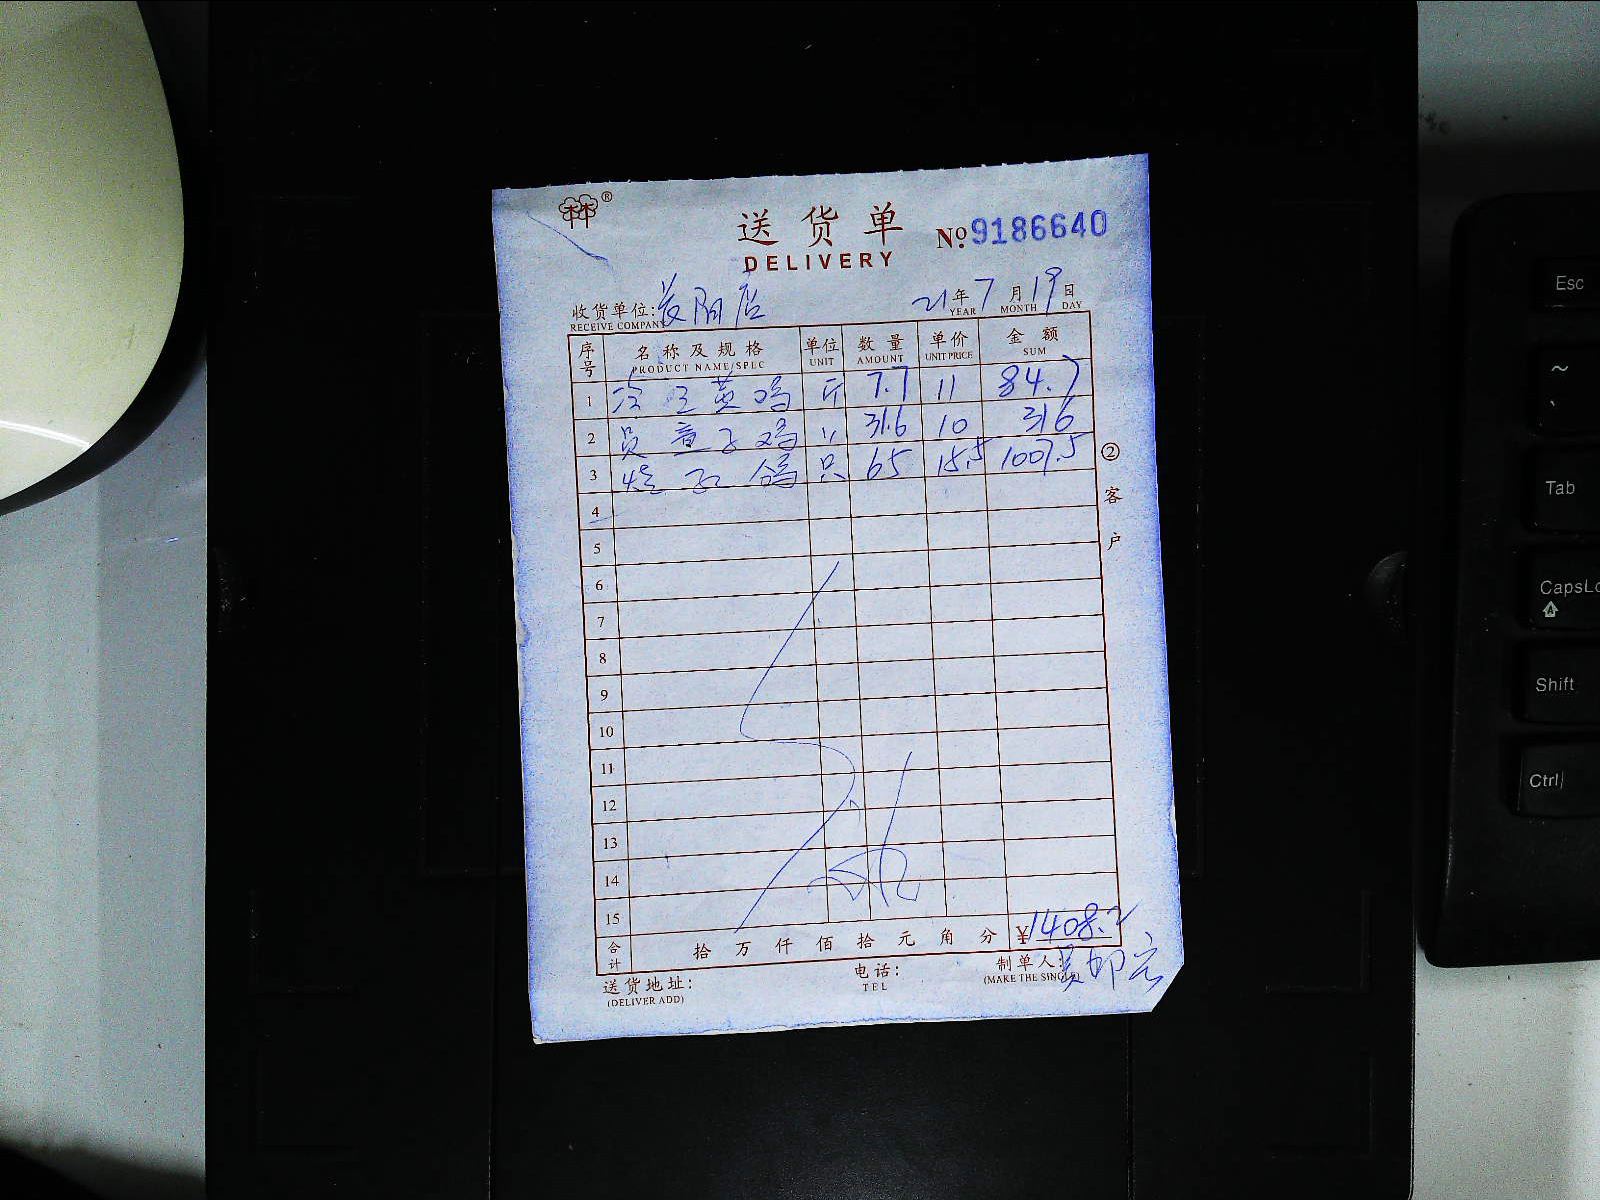 林®
送货单
DELIVERY
No.9186640
收货单位:
RECEIVE COMPANY
21年7月19日
YEAR MONTH DAY
序号 名称及规格 单位 数量 单价 金额
PRODUCT NAME/SPEC UNIT AMOUNT UNIT PRICE SUM
1 斤 7.7 11 84.7
2 童子鸡 〃 31.6 10 316
3 只 65 15.5 1007.5
4
5
6
7
8
9
10
11
12
13
14
15
合计 拾万仟佰拾元角分 ¥1408.2
送货地址: 电话: 制单人:
(DELIVER ADD) TEL (MAKE THE SINGLE)
②客户
Esc
~
`
Tab
CapsLo
Shift
Ctrl